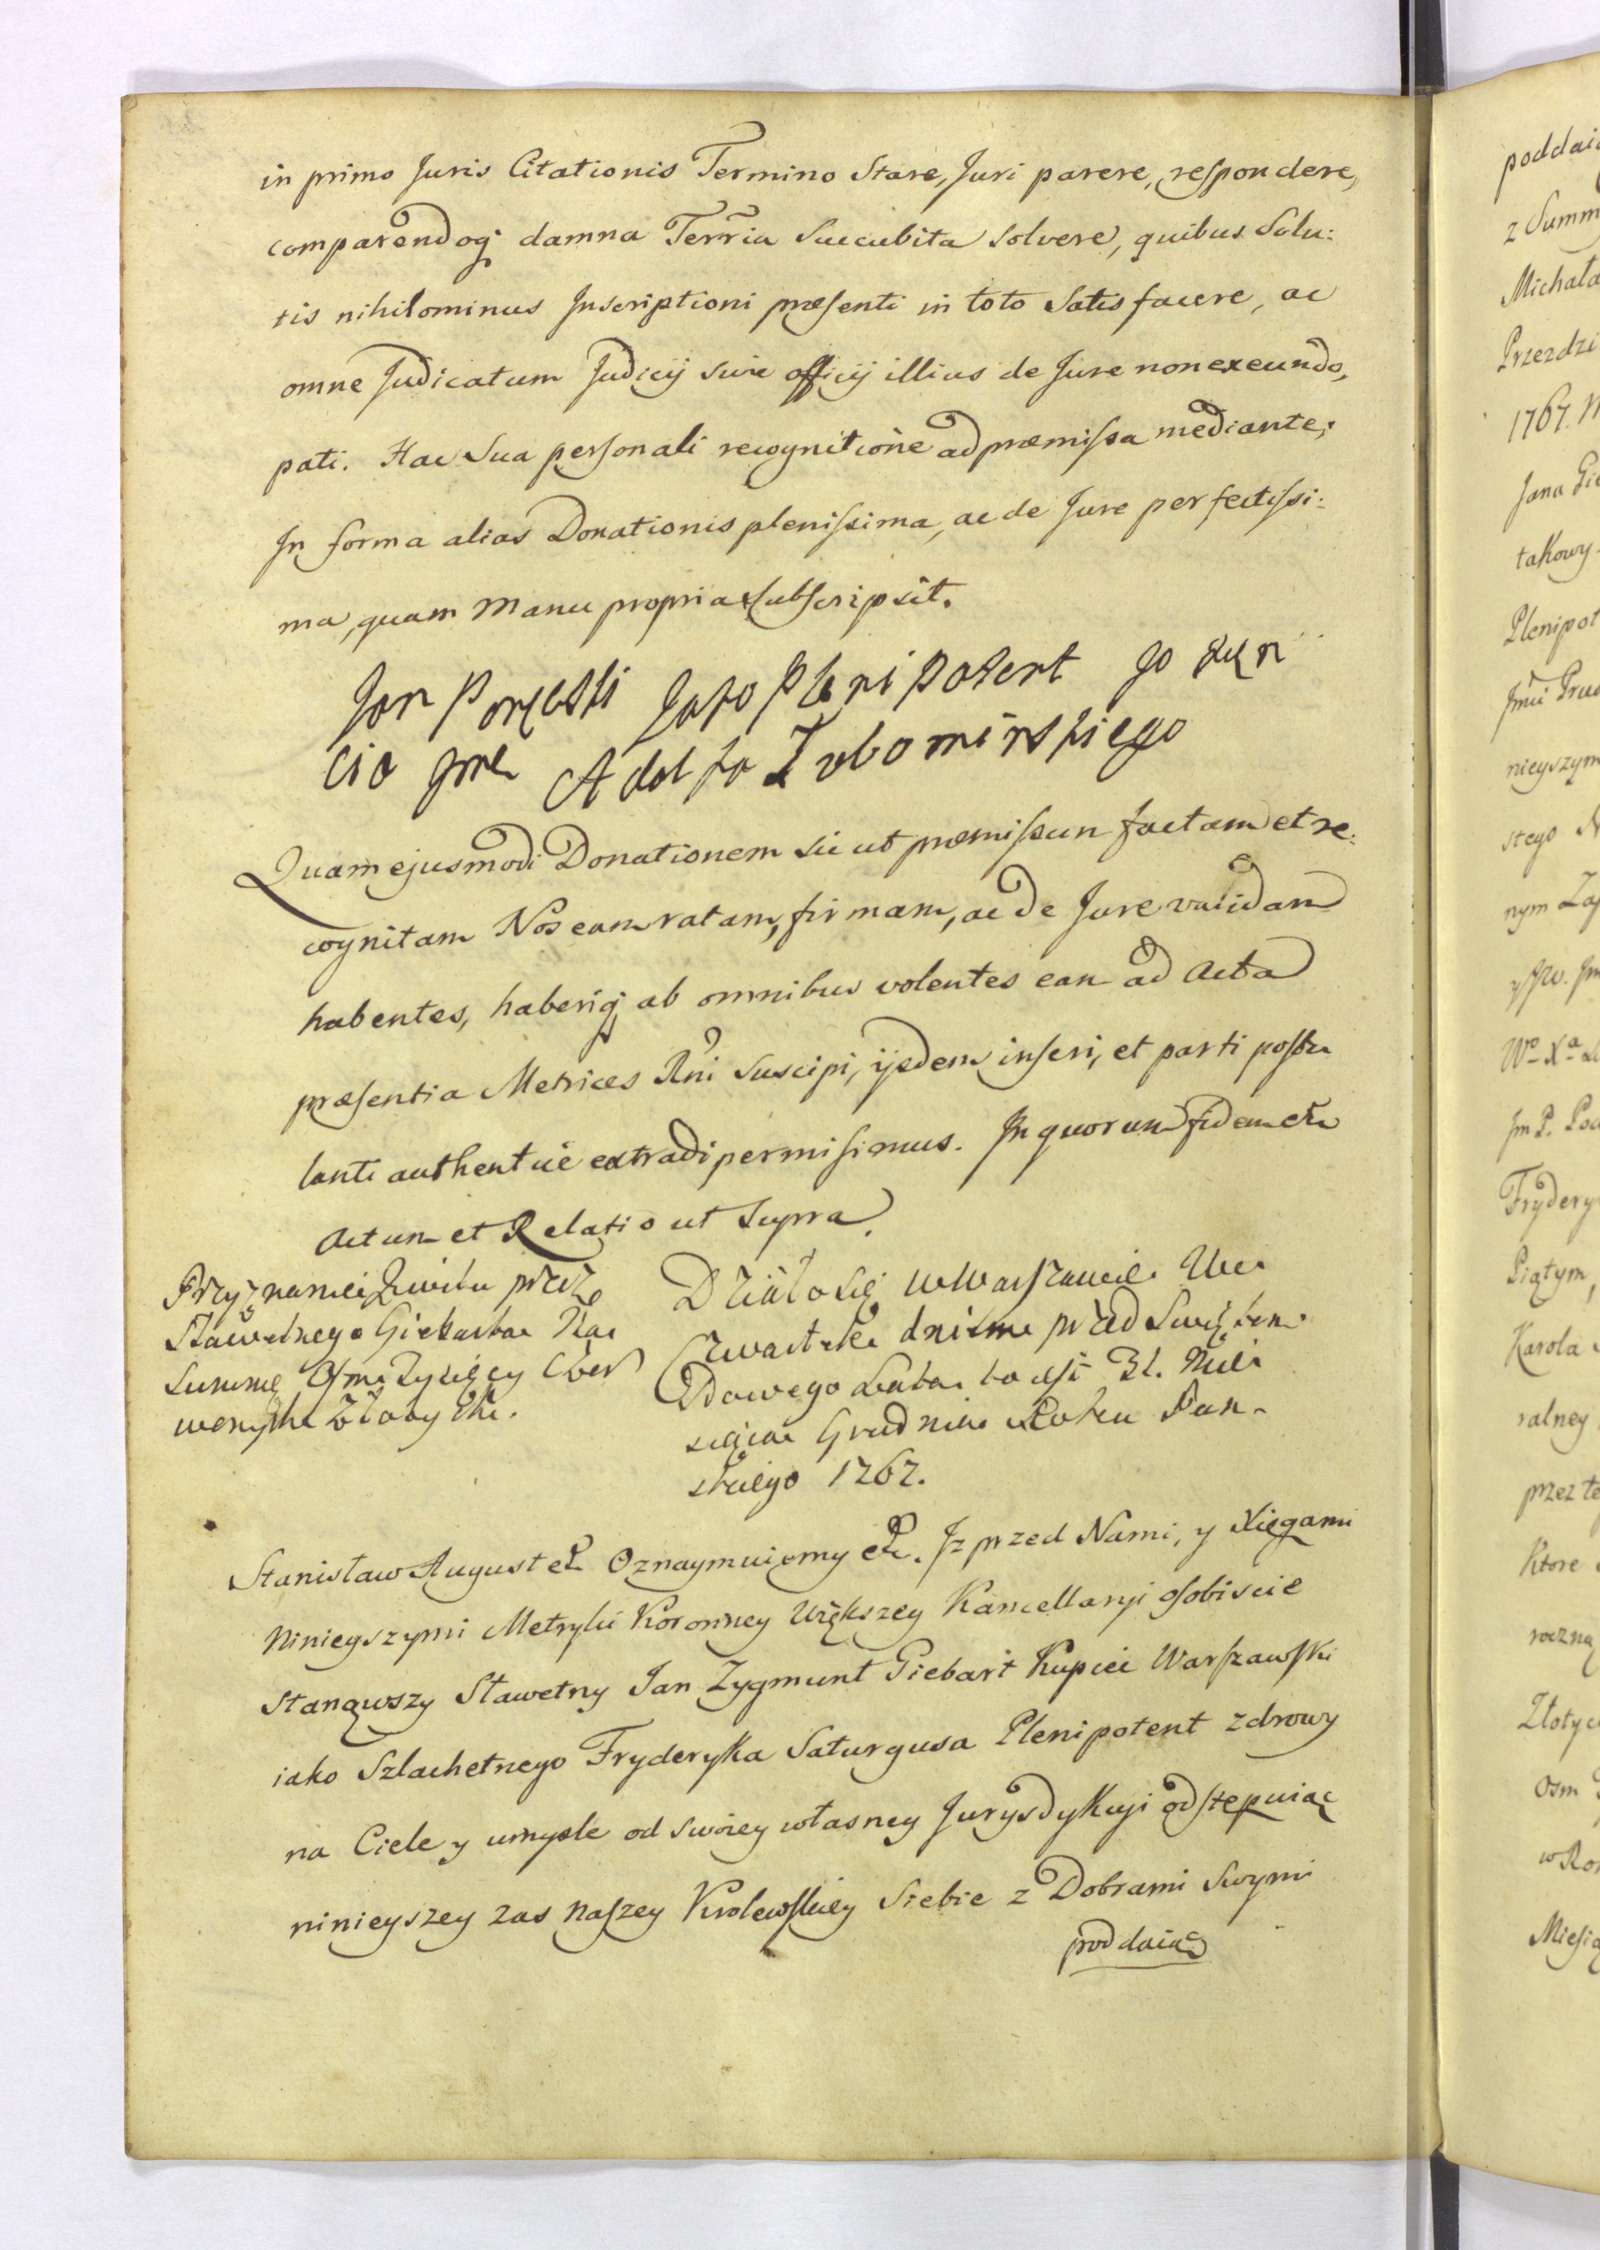 in primo Juris Citationis Termino Stare, Juri parere, respondere,
comparendoq; damna Terria Succubita solvere, quibus Solu:
tis nihilominus Inscriptioni præsenti in toto Satisfacere, ac
omne Judicatum Judicij sive officij illius de Jure non exeundo,
pati. Hac Sua personali recognitione ad præmissa mediante;
In forma alias Donationis plenissima, ac de Jure perfectissi:
ma, quam Manu propria subscripsit.
Jan Jako Plenipotent Jo
cia Jme Adolfa Lubomirskiego
Quam ejusmodi Donationem sic ut præmissum factam et re:
cognitam Nos eam ratam, firmam, ac de Jure validam
habentes, haberiq; ab omnibus volentes eam ad Acta
præsentia Metrices Rni Suscipi, ijsdem inseri, et parti postu
lanti authentice extradi permisimus. In quorum fidem etc
Actum et Relatio ut Supra.
Przyznanie Kwitu przez
Sławetnego Giebarta Na
Summę Osm Tysięcy Czer
wonych Złotych.
Działo się w Warszawie We
Czwartek dniem przed Swiętem
Nowego Lata to jest 31. Mie
siąca Grudnia Roku Pan-
skiego 1767.
Stanisław August etc. Oznaymuiemy etc. Jz przed Nami, y Xięgami
Ninieyszymi Metryki Koronney Większey Kancellaryi osobiscie
stanąwszy Sławetny Jan Zygmunt Giebart Kupiec Warszawski
iako Szlachetnego Fryderyka Saturgusa Plenipotent zdrowy
na Ciele y umysle od swoiey własney Jurysdykcyi odstępuiąc
ninieyszey zas Naszey Krolewskiey Siebie z Dobrami Swymi
poddaiąc
poddaią
z Summ
Michała
Przezdzi
1767. M
Jana Gie
takowy
Plenipot
nieyszym
stego
nym Zap
Jm P. Pod
Fryderyk
Piątym,
Karola
ralney
przez te
Ktore
roczną
Złotych
Osm
w Ro
Miesią